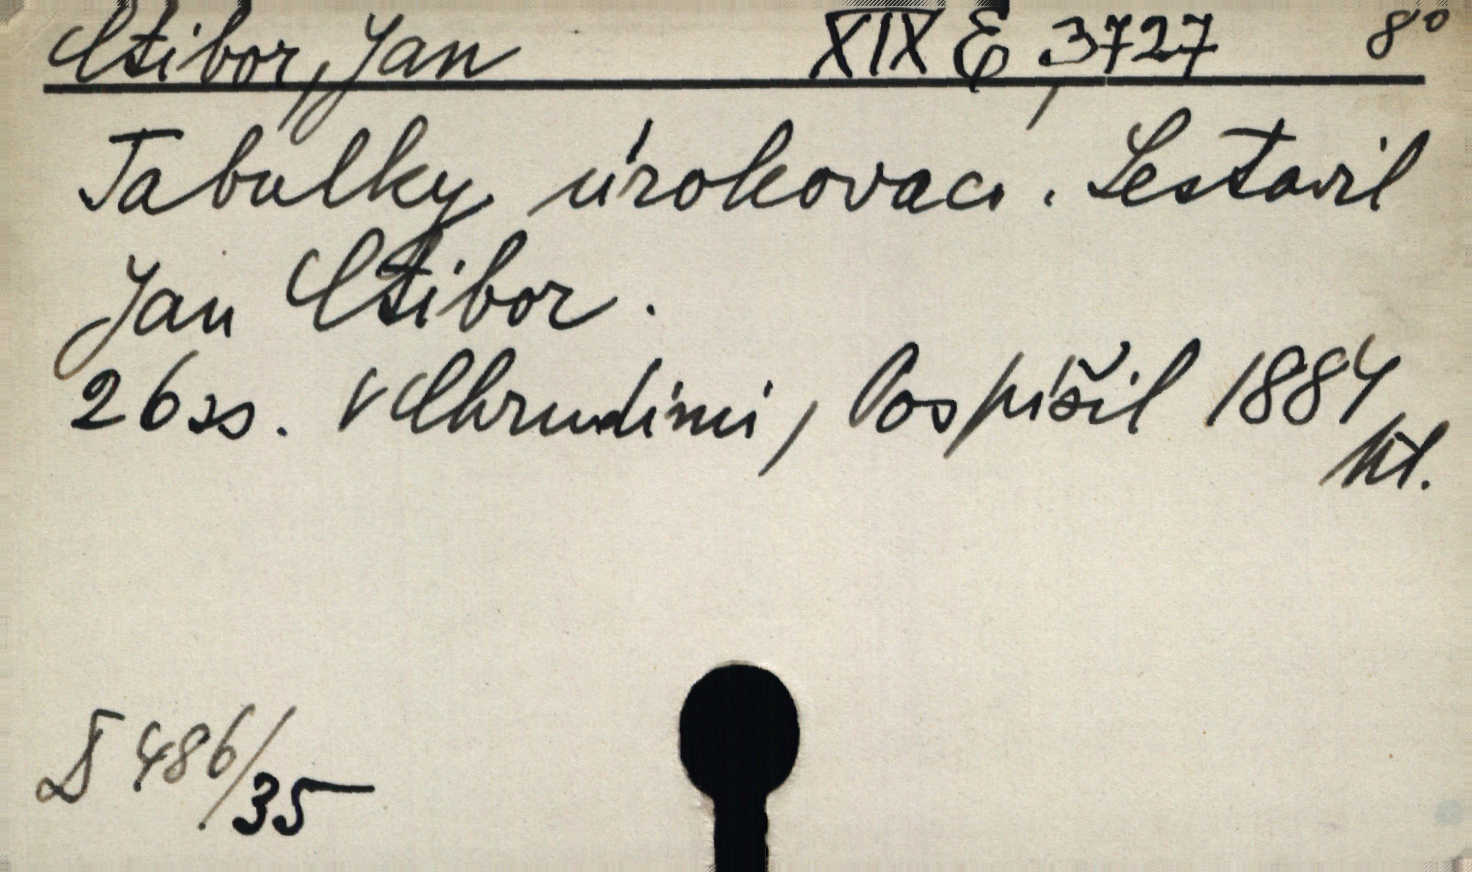 Ctibor, Jan XIX E 3727 8°
Tabulky úrokovací. Sestavil
Jan Ctibor.
26 ss. V Chrudimi, Pospíšil 1884
kt.
486/35